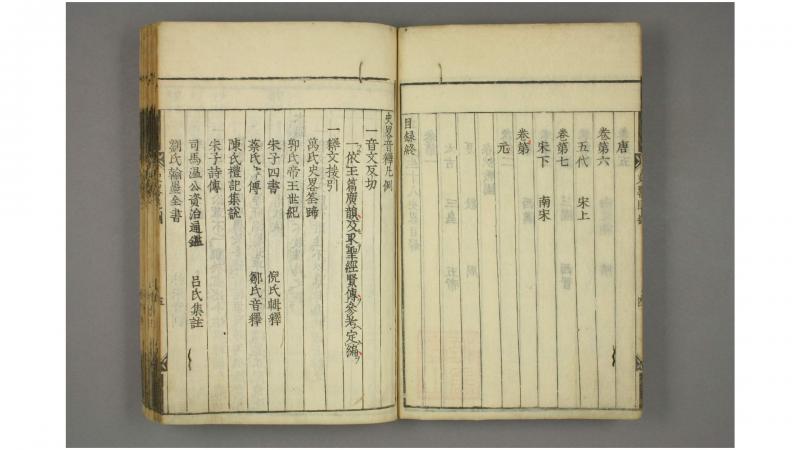 唐
卷第六
五代 宋上
卷第七
宋下 南宋
卷第
元
目録終
史畧音釋凡例
一音文反切
一依玉篇廣韻及取聖經賢傳參考定編
一釋文援引
萬氏史畧筌蹄
郭氏帝王世紀
朱子四書 倪氏輯釋
蔡氏書傳 鄒氏音釋
陳氏禮記集說
朱子詩傳
司馬溫公資治通鑑 呂氏集註
劉氏翰墨全書